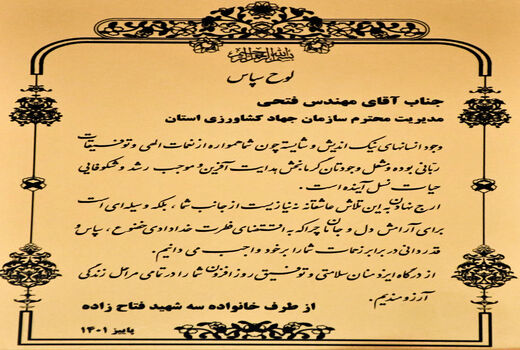 بسم الله الرحمن الرحیم
لوح سپاس
جناب آقای مهندس فتحی
مدیریت محترم سازمان جهاد کشاورزی استان
وجود انسانهای نیک اندیش و شایسته چون شما همواره از نعمات الهی و توفیقات
ربانی بوده و مشعل وجودتان گرمابخش هدایت آفرین و موجب رشد و شکوفایی
حیات نسل آینده است .
ارج نهادن به این تلاش عاشقانه نه نیاز یست از جانب شما ، بلکه وسیله ای است
برای آرامش دل و جان ما چرا که به اقتضای فطرت خدادادی خضوع ، سپاس و
قدردانی در برابر زحمات شما را بر خود واجب می دانیم .
از درگاه ایزد منان سلامتی و توفیق روز افزون شما را در تمامی مراحل زندگی
آرزومندیم .
از طرف خانواده سه شهید فتاح زاده
پاییز ۱۴۰۱